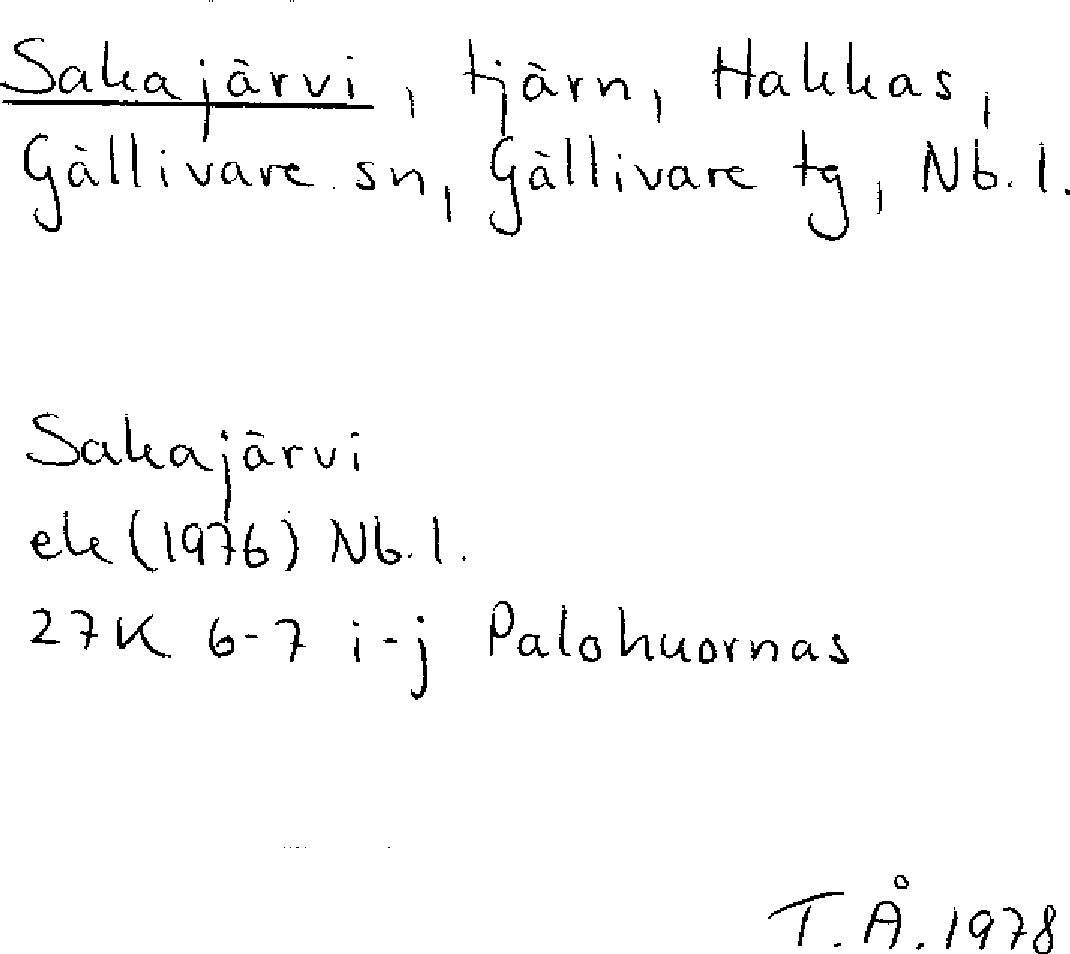 Sakajärvi, tjärn, Hakkas,
Gällivare sn, Gällivare tg, Nb. l.
Sakajärvi
ek (1976) Nb. l.
27K 6-7 i-j Palohuornas
T. Å. 1978